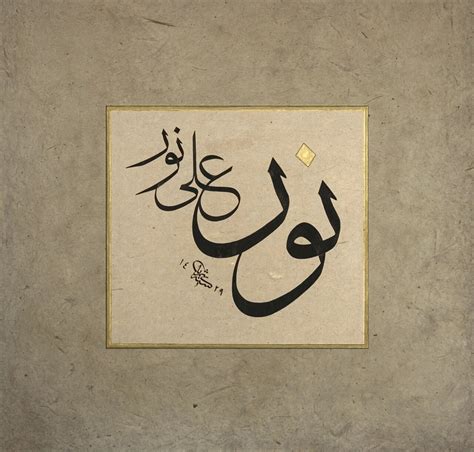 نور على نور
١٤ ٢٩